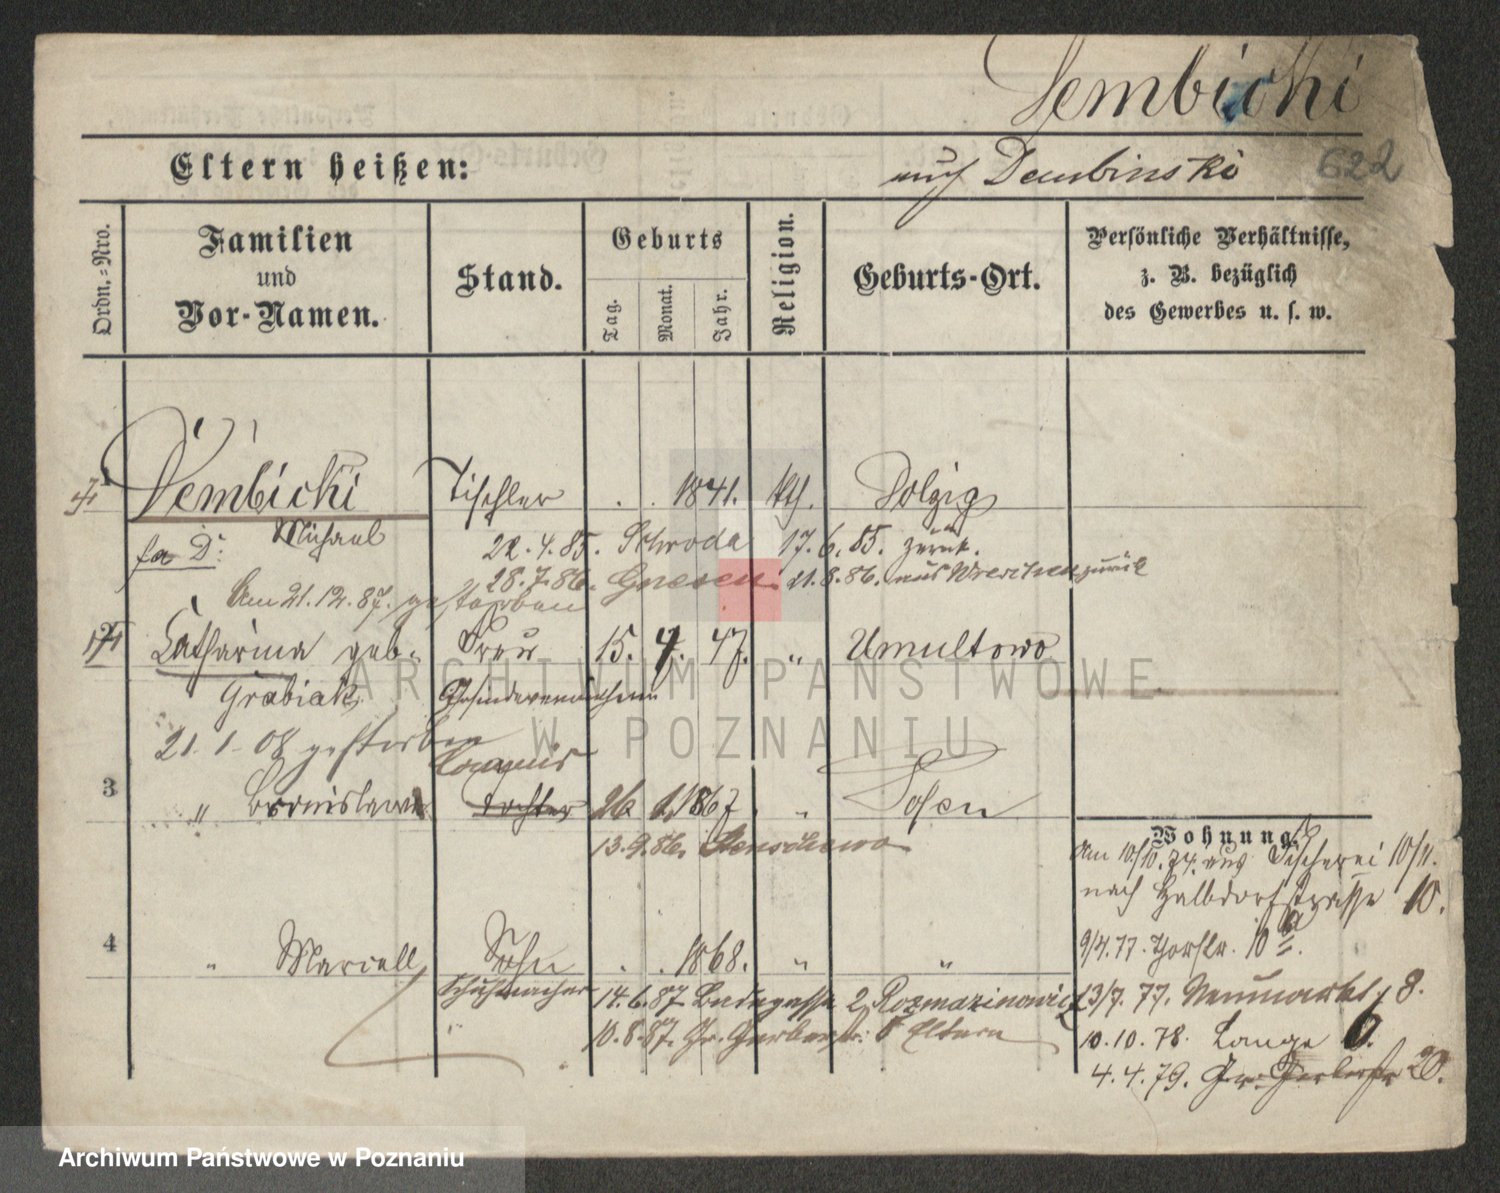 Dembicki
Eltern heißen:
auch Dembinski
622
Ordn.=Nro.
Familien
und
Vor-Namen.
Stand.
Geburts
Tag.
Monat.
Jahr.
Religion.
Geburts-Ort.
Persönliche Verhältnisse,
z. B. bezüglich
des Gewerbes u. s. w.
Dembicki Tischler . . 1841. kth. Dolzig
Michael
22.4.85. Schroda 17.6.85. zurück.
28.7.86. Gnesen 21.8.86. aus Wreschen zurück
Am 21.12.87. gestorben
Catharina geb. Frau 15. 4. 47. " Umultowo
Grabiak
21.1.08 gestorben
3 " Tochter 26 1867 " Posen
13.9.86.
4 " Marcell Sohn . . 1868. " "
Schuhmacher 14.6.87. 2
10.8.87. Gr. Gerberstr. 8 Eltern
Wohnung
Am 10/10.74. aus Fischerei 10/11.
nach Halbdorfstrasse 10.
9/4.77. 10
13/7.77. Neumarkt 8.
10.10.78. Lange 6.
4.4.79. Gr. Gerberstr 20.
ARCHIWUM PAŃSTWOWE
W POZNANIU
Archiwum Państwowe w Poznaniu